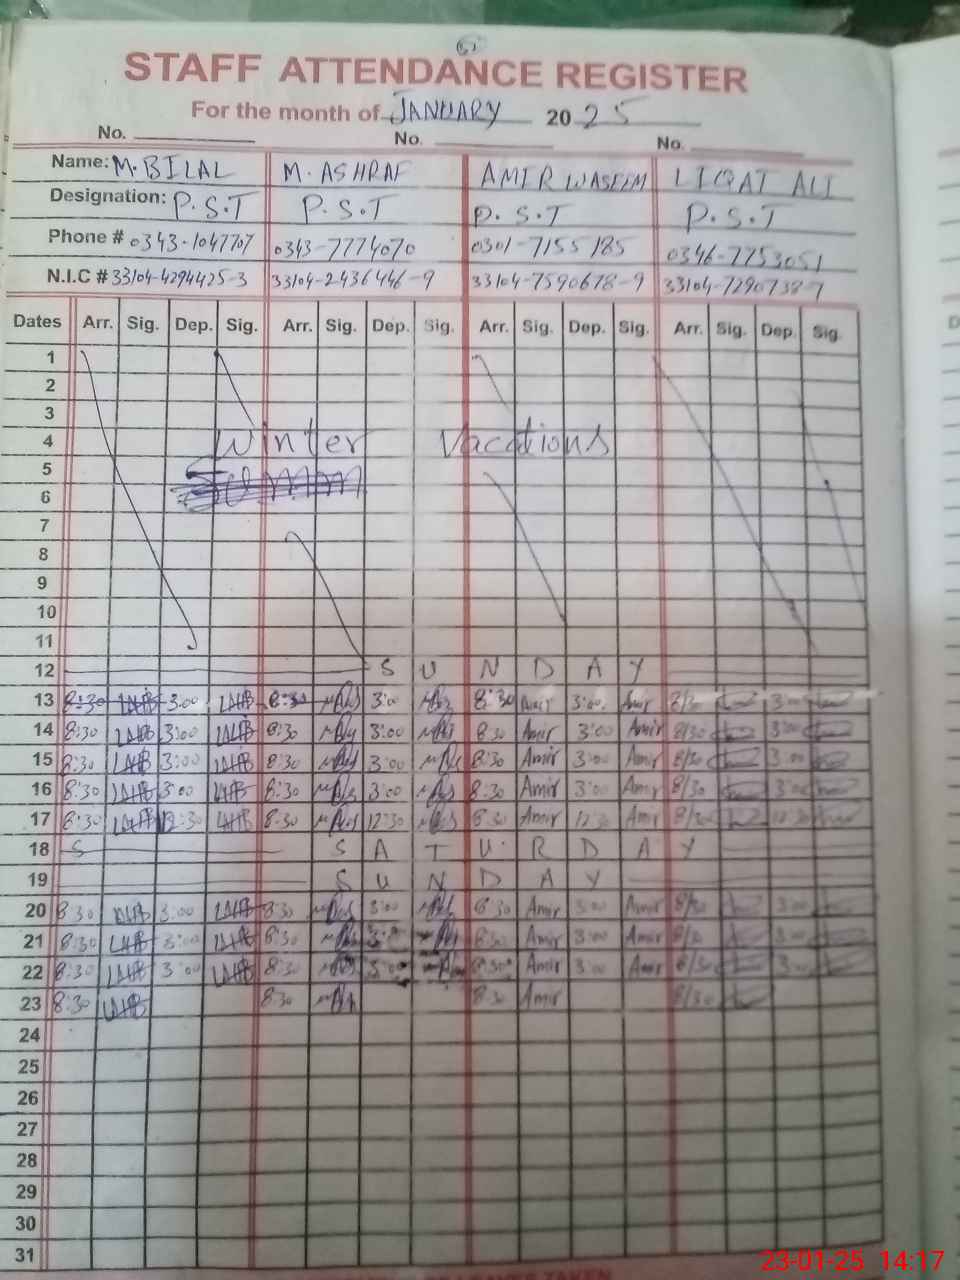 STAFF ATTENDANCE REGISTER
For the month of JANUARY 2025
No. No. No.
Name: M. BILAL M. ASHRAF AMIR WASEEM LIQAT ALI
Designation: P.S.T P.S.T P.S.T P.S.T
Phone # 0343-1047707 0343-7774070 0301-7155185 0346-7753051
N.I.C # 33104-4294425-3 33104-2436446-9 33104-7590678-9 33104-7290738-7
Dates Arr. Sig. Dep. Sig. Arr. Sig. Dep. Sig. Arr. Sig. Dep. Sig. Arr. Sig. Dep. Sig.
1
2
3
4 Winter Vacations
5
6
7
8
9
10
11
12 SUNDAY
13 8:30 3:00 8:30 3:00 8:30 Amir 3:00 Amir 8/30 3:00
14 8:30 3:00 8:30 3:00 8:30 Amir 3:00 Amir 8/30 3:00
15 8:30 3:00 8:30 3:00 8:30 Amir 3:00 Amir 8/30 3:00
16 8:30 3:00 8:30 3:00 8:30 Amir 3:00 Amir 8/30 3:00
17 8:30 12:30 8:30 12:30 8:30 Amir 12:30 Amir 8/30 12:30
18 S SATURDAY
19 SUNDAY
20 8:30 3:00 8:30 3:00 8:30 Amir 3:00 Amir 8/30 3:00
21 8:30 3:00 8:30 3:00 8:30 Amir 3:00 Amir 8/30 3:00
22 8:30 3:00 8:30 3:00 8:30 Amir 3:00 Amir 8/30 3:00
23 8:30 8:30 8:30 Amir 8/30
24
25
26
27
28
29
30
31
23-01-25 14:17